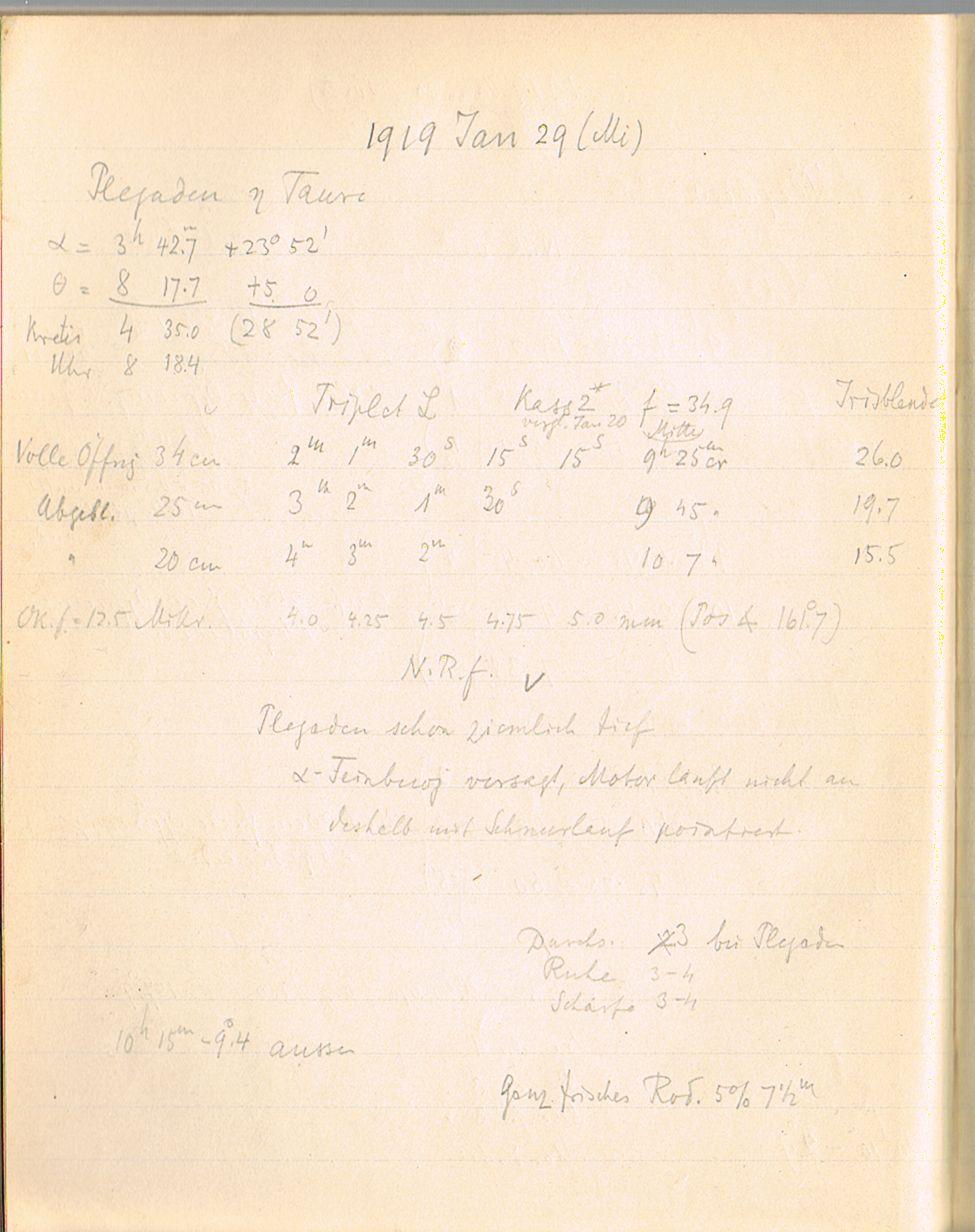 1919 Jan 29 (Mi)
Plejaden η Tauri
α = 3ʰ 42.ᵐ7 +23° 52'
θ = 8 17.7 +5 0
Kreis 4 35.0 (28 52')
Uhr 8 18.4
Triplet L Kass 2* f = 34.9 Irisblende
vergl. Jan 20 Mitte
Volle Öffng 34 cm 2ᵐ 1ᵐ 30ˢ 15ˢ 15ˢ 9ʰ 25ᵐ 26.0
Abgebl. 25 cm 3ᵐ 2ᵐ 1ᵐ 30ˢ 9 45 " 19.7
" 20 cm 4ᵐ 3ᵐ 2ᵐ 10 7 " 15.5
Ok. f = 12.5 Mikr. 4.0 4.25 4.5 4.75 5.0 mm (Pos ∡ 161°.7)
N.R.f. ✓
Plejaden schon ziemlich tief
α-Feinbewg versagt, Motor läuft nicht an
deshalb mit Schnurlauf pointiert.
Durchs. 3 bei Plejaden
Ruhe 3-4
Schärfe 3-4
10ʰ 15ᵐ -9°.4 aussen
Ganz frisches Rod. 5% 7½ᵐ